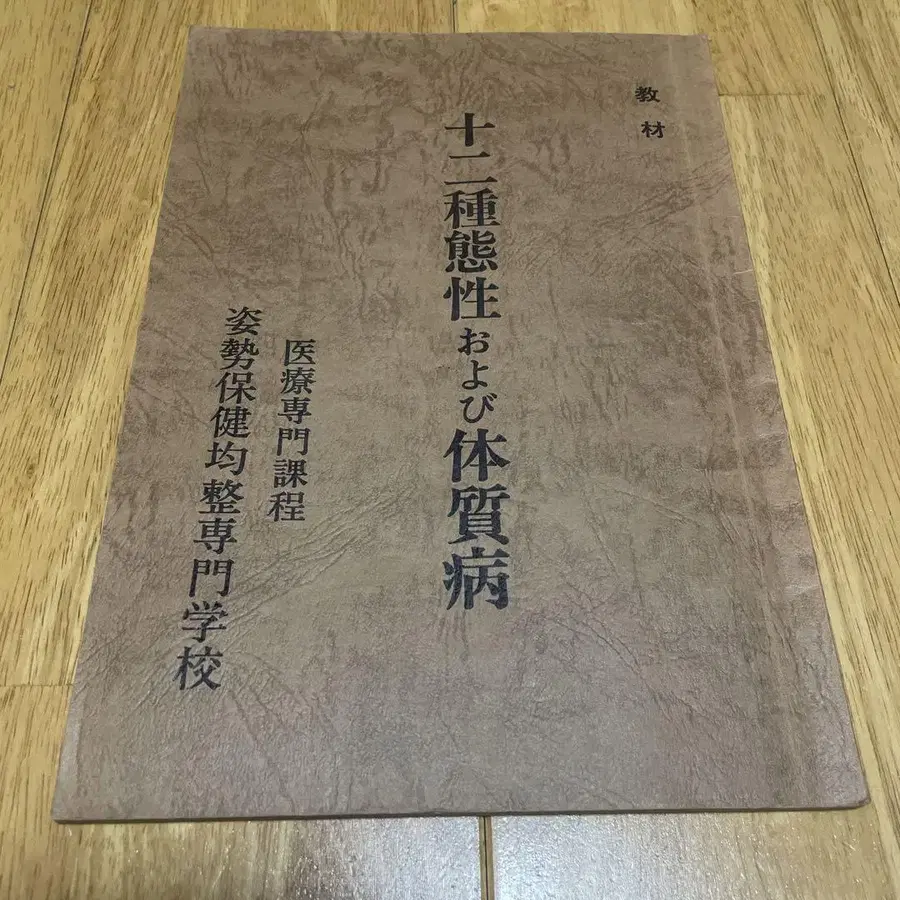 教材
十二種態性および体質病
医療専門課程
姿勢保健均整専門学校